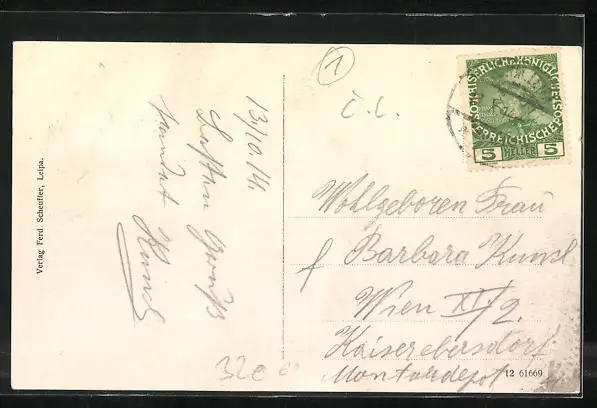 Verlag Ferd. Scheufler, Leipa.
13/10.14.
sendet Kunsl
1
32€
KAISERLICHEKÖNIGLICHE
ÖSTERREICHISCHE POST
5 HELLER 5
Wohlgeboren Frau
Barbara Kunsl
Wien XI/2.
Kaiserebersdorf
Monturdepot
12 61669